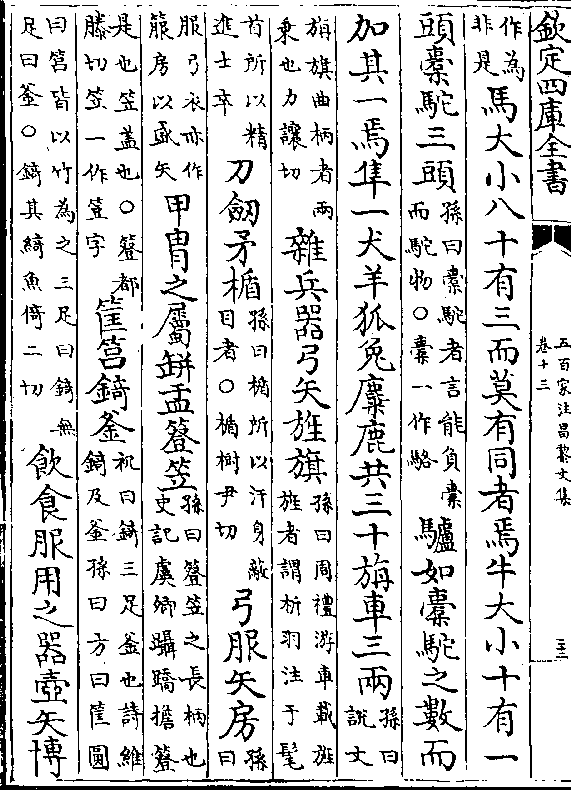 欽定四庫全書
五百家注昌黎文集
卷十三
作為非是馬大小八十有三而莫有同者焉牛大小十有一
頭橐駝三頭孫曰橐駝者言能負橐而駝物○橐一作駱驢如橐駝之數而
加其一焉隼一犬羊狐兔麋鹿共三十旃車三兩孫曰説文
旃旗曲柄者兩乗也力讓切雜兵器弓矢旌旗孫曰周禮游車載旌旌者謂析羽注于髦
首所以精進士卒刀劒矛楯孫曰楯所以汗身蔽目者○楯樹尹切弓服矢房孫曰
服弓衣亦作箙房以盛矢甲冑之屬缾盂簦笠孫曰簦笠之長柄也史記虞卿躡蹻擔簦
是也笠蓋也○簦都滕切笠一作字筐筥錡釜祝曰錡三足釜也詩維錡及釜孫曰方曰筐圓
曰筥皆以竹為之三足曰錡無足曰釜○錡其綺魚倚二切飲食服用之器壺矢博